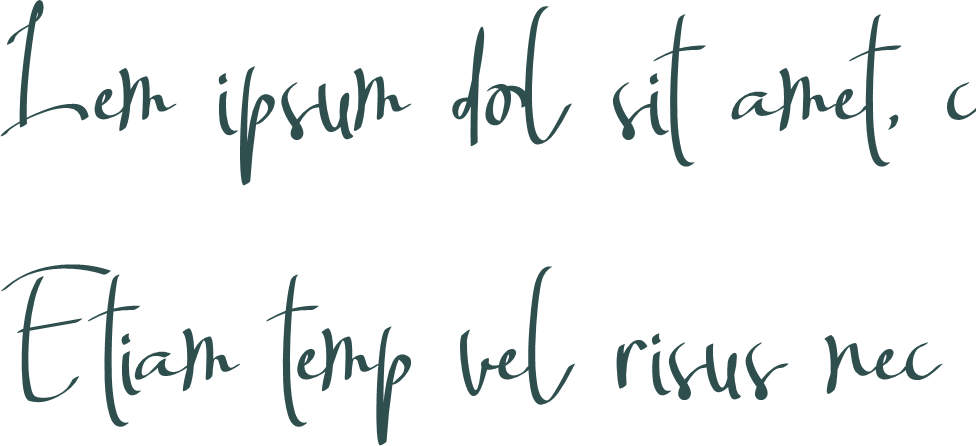 Lem ipsum dol sit amet, c
Etiam temp vel risus nec